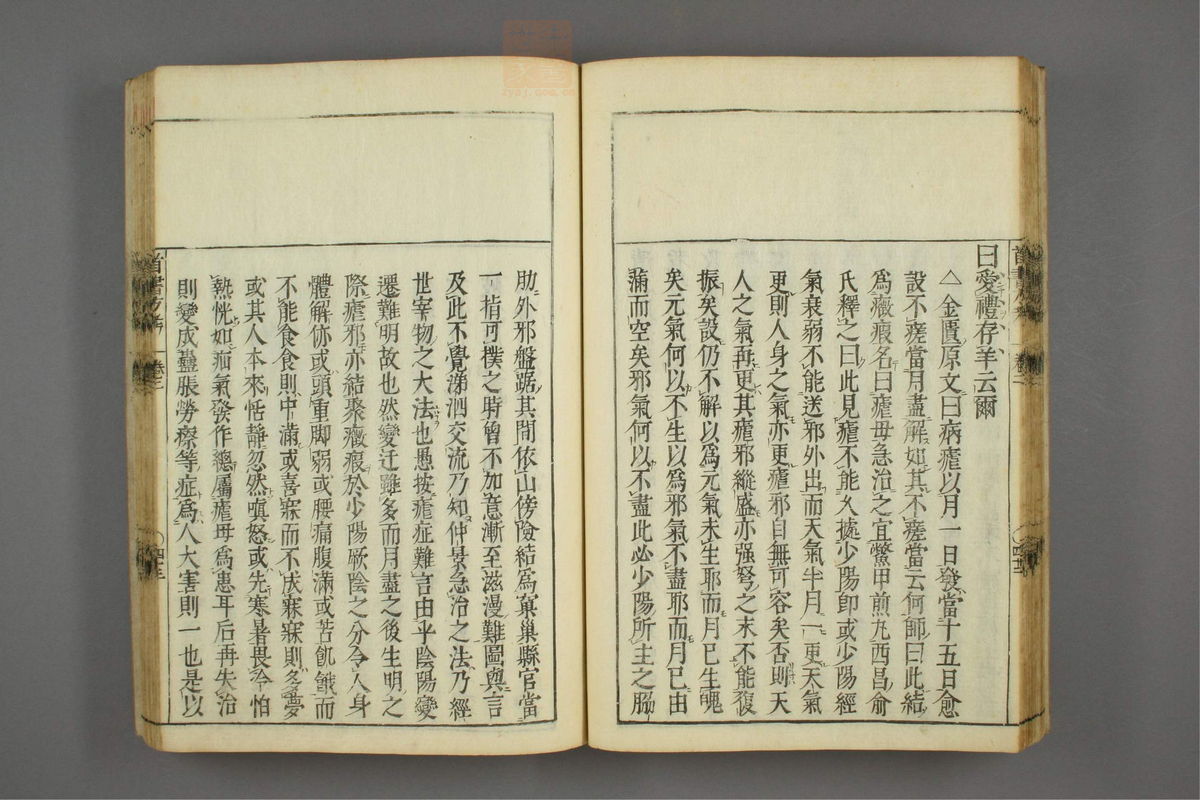 曰愛禮存羊云爾
△金匱原文曰病瘧以月一日發當十五日愈
設不瘥當月盡解如其不瘥當云何師曰此結
爲癥瘕名曰瘧母急治之宜鱉甲煎九西昌俞
氏釋之曰此見瘧不能久據少陽卽或少陽經
氣衰弱不能送邪外出而天氣半月一更天氣
更則人身之氣亦更瘧邪自無可容矣否則天
人之氣再更其瘧邪縱盛亦强弩之末不能復
振矣設仍不解以爲元氣未生耶而月已生魄
矣元氣何以不生以爲邪氣不盡耶而月已由
滿而空矣邪氣何以不盡此必少陽所主之脇
肋外邪盤踞其間依山傍險結爲窠巢縣官當
一指可撲之時曾不加意漸至滋漫難圖輿言
及此不覺涕泗交流乃知仲景急治之法乃經
世宰物之大法也愚按瘧症難言由乎陰陽變
遷難明故也然變迁雖多而月盡之後生明之
際瘧邪亦結聚癥瘕於少陽厥陰之分令人身
體解㑊或頭重脚弱或腰痛腹滿或苦飢餓而
不能食食則中滿或喜寐而不成寐寐則多夢
或其人本來恬靜忽然嗔怒或先寒暑畏今怕
熱恍如疝氣發作緫屬瘧母爲患耳后再失治
則變成蠱脹勞瘵等症爲人大害則一也是以